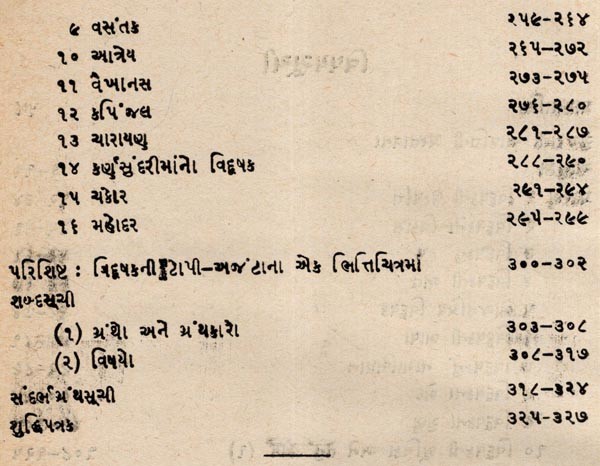 ૯ વસંતક ૨૫૯-૨૬૪
૧૦ આત્રેય ૨૬૫-૨૭૨
૧૧ વૈખાનસ ૨૭૩-૨૭૫
૧૨ કપિંજલ ૨૭૬-૨૮૦
૧૩ ચારાયણ ૨૮૧-૨૮૭
૧૪ કર્ણસુંદરીમાંનો વિદૂષક ૨૮૮-૨૯૦
૧૫ ચકોર ૨૯૧-૨૯૪
૧૬ મહોદર ૨૯૫-૨૯૯
પરિશિષ્ટ : વિદૂષકની ટોપી-અજંટાના એક ભિત્તિચિત્રમાં ૩૦૦-૩૦૨
શબ્દસૂચી
(૧) ગ્રંથો અને ગ્રંથકારો ૩૦૩-૩૦૮
(૨) વિષયો ૩૦૮-૩૧૭
સંદર્ભગ્રંથસૂચી ૩૧૮-૩૨૪
શુદ્ધિપત્રક ૩૨૫-૩૨૭